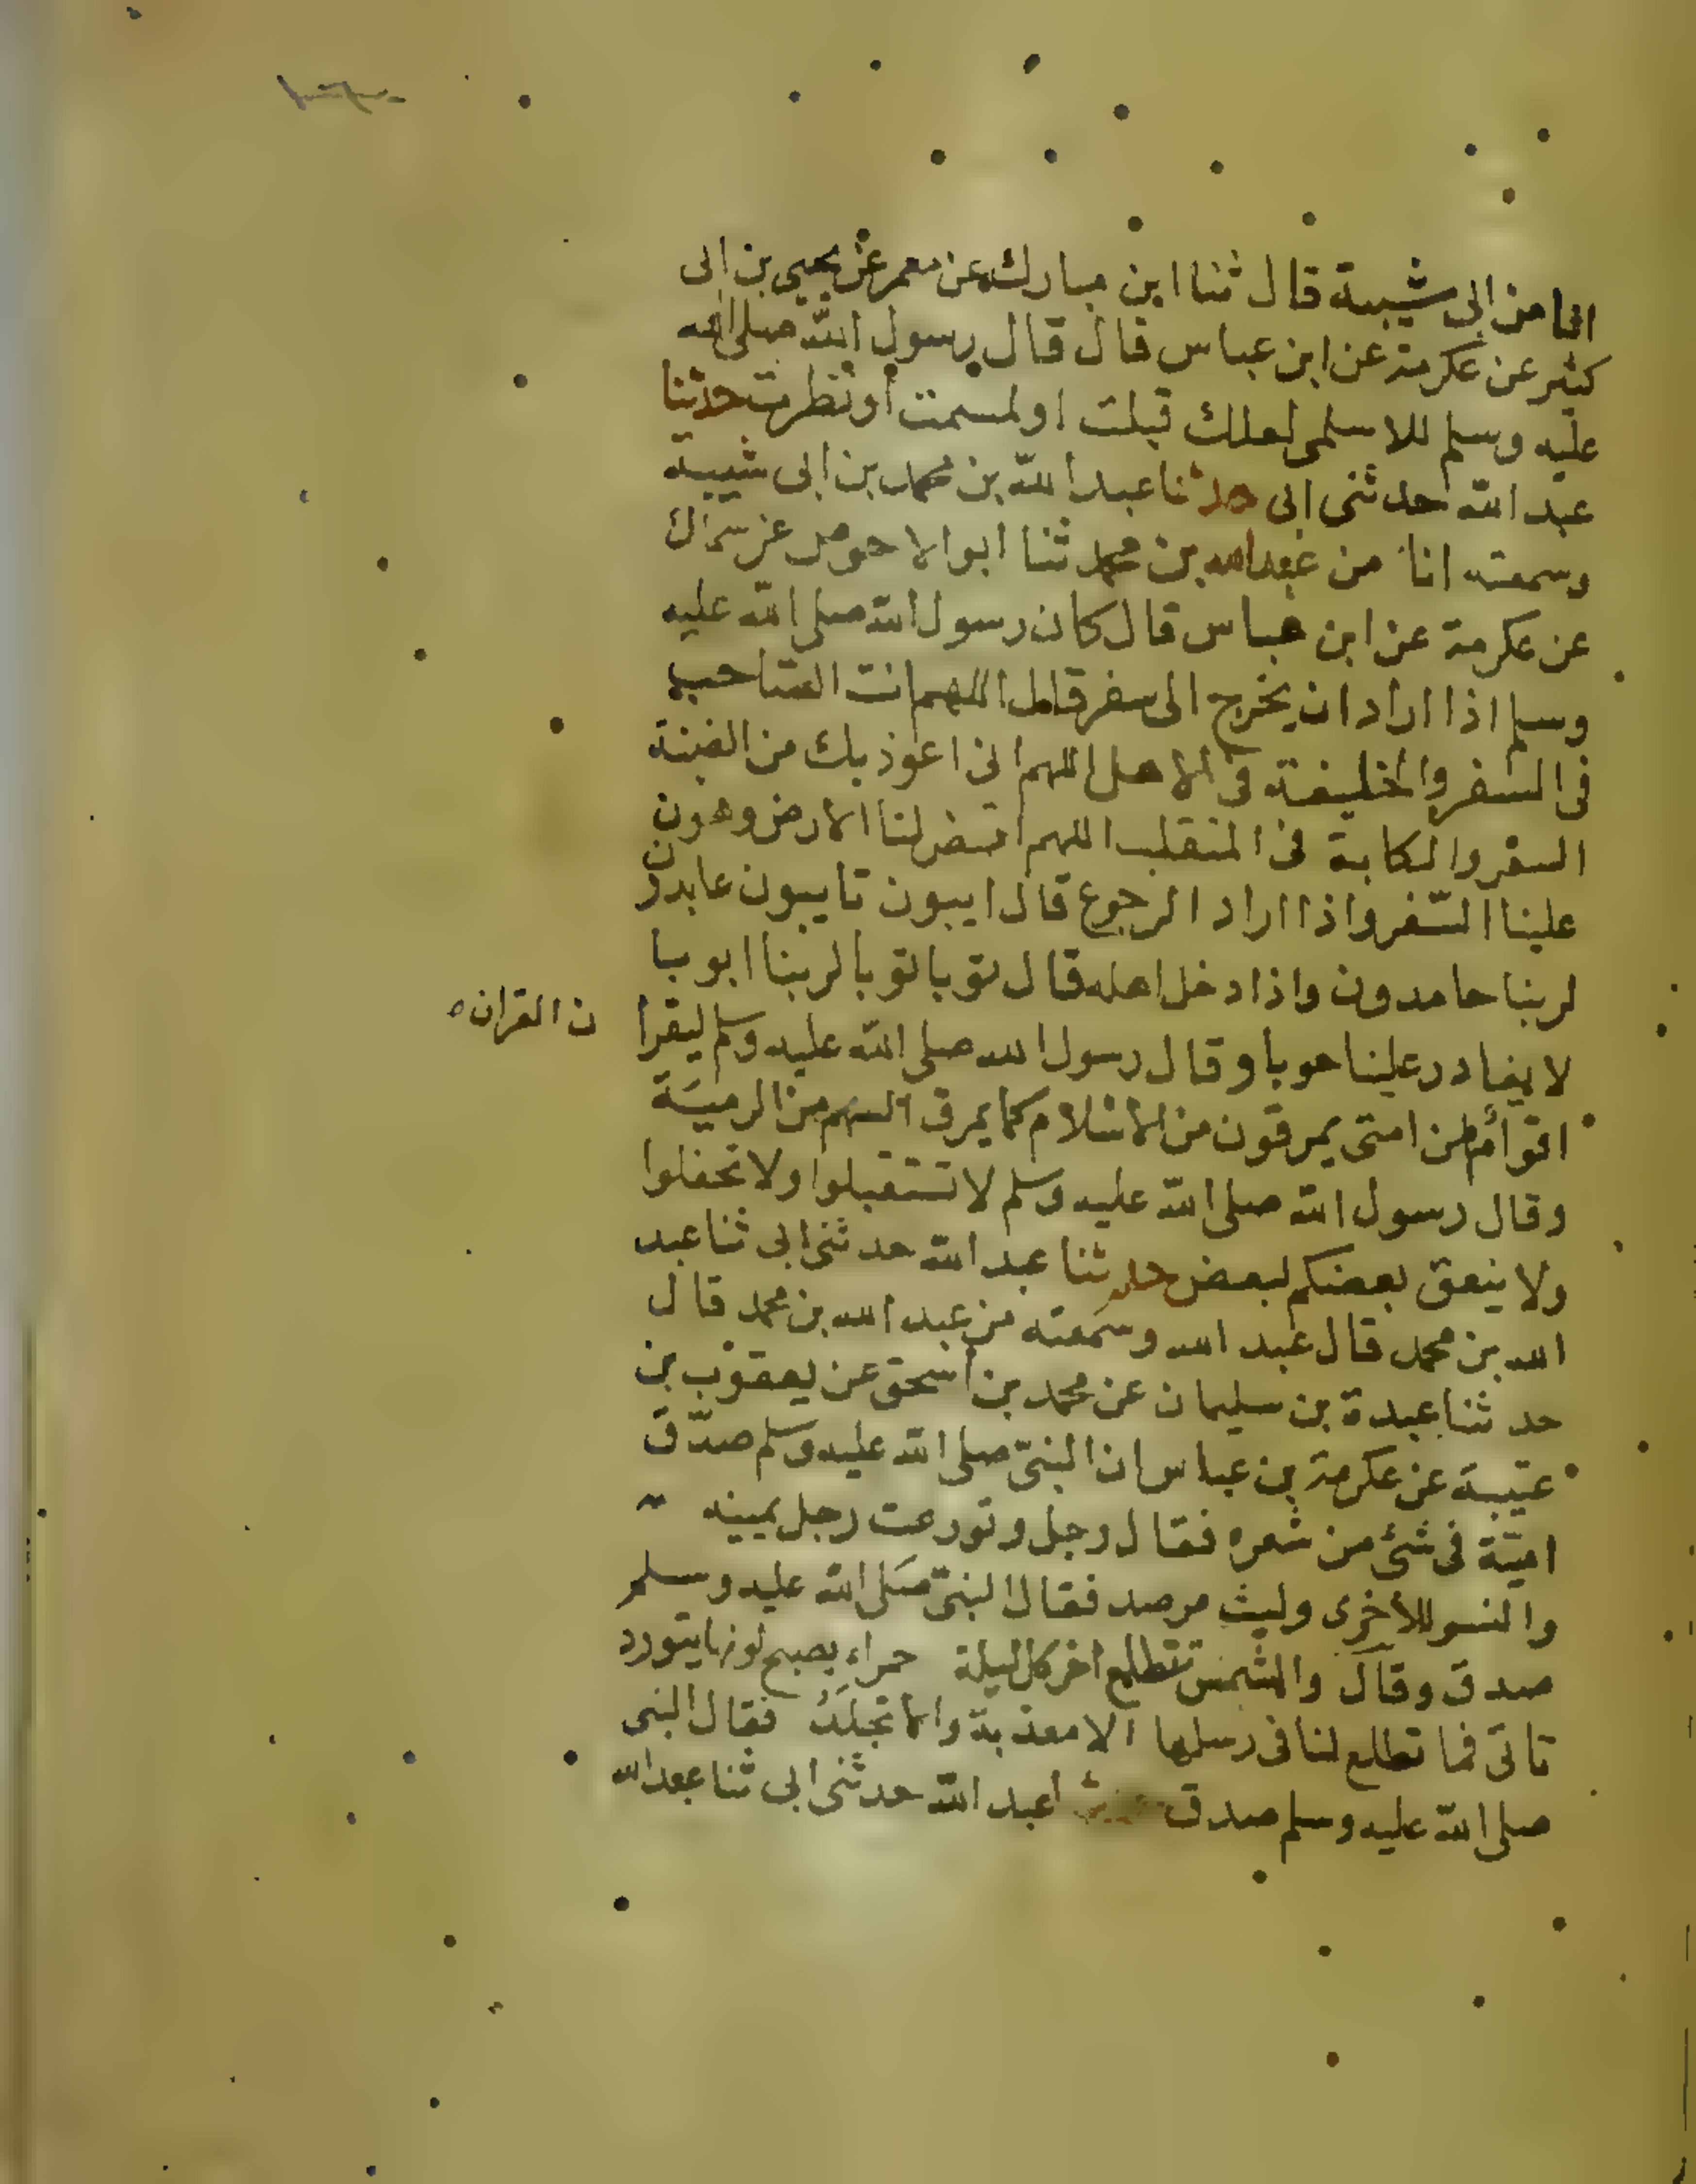 انا من ابى شيبة قال ثنا ابن مبارك عن معمر عن يحيى بن ابى
كثير عن عكرمة عن ابن عباس قال قال رسول الله صلى الله
عليه وسلم للاسلمى لعلك قبلت او لمست او نظرت حدثنا
عبد الله حدثنى ابى حدثنا عبد الله بن محمد بن ابى شيبة
وسمعته انا من عبد الله بن محمد ثنا ابو الاحوص عن سماك
عن عكرمة عن ابن عباس قال كان رسول الله صلى الله عليه
وسلم اذا اراد ان يخرج الى سفر قال اللهم انت الصاحب
فى السفر والخليفة فى الاهل اللهم انى اعوذ بك من الضبنة
السفر والكابة فى المنقلب اللهم اقبض لنا الارض وهون
علينا السفر واذا اراد الرجوع قال ايبون تايبون عابدون
لربنا حامدون واذا دخل اهله قال توبا توبا لربنا ابوبا
لا يغادر علينا حوبا وقال رسول الله صلى الله عليه وسلم ليقرا ن القران ه
اقوام من امتى يمرقون من الاسلام كما يمرق السهم من الرمية
وقال رسول الله صلى الله عليه وسلم لا تستقبلوا ولا تحفلوا
ولا ينعق بعضكم لبعض حدثنا عبد الله حدثنى ابى ثنا عبد
الله بن محمد قال عبد الله وسمعته من عبد الله بن محمد قال
حدثنا عبدة بن سليمان عن محمد بن اسحق عن يعقوب بن
عتيبة عن عكرمة بن عباس ان النبى صلى الله عليه وسلم صدق
امية فى شئ من شعره فقال رجل وثور عت رجل يمينه
والنسر للأخرى وليث مرصد فقال النبى صلى الله عليه وسلم
صدق وقال والشمس تطلع اخر كل ليلة حمراء يصبح لونها يتورد
تاتى فما تطلع لنا فى رسلها الا معذبة والا تجلد فقال النبى
صلى الله عليه وسلم صدق حدثنا عبد الله حدثنى ابى ثنا عبد الله